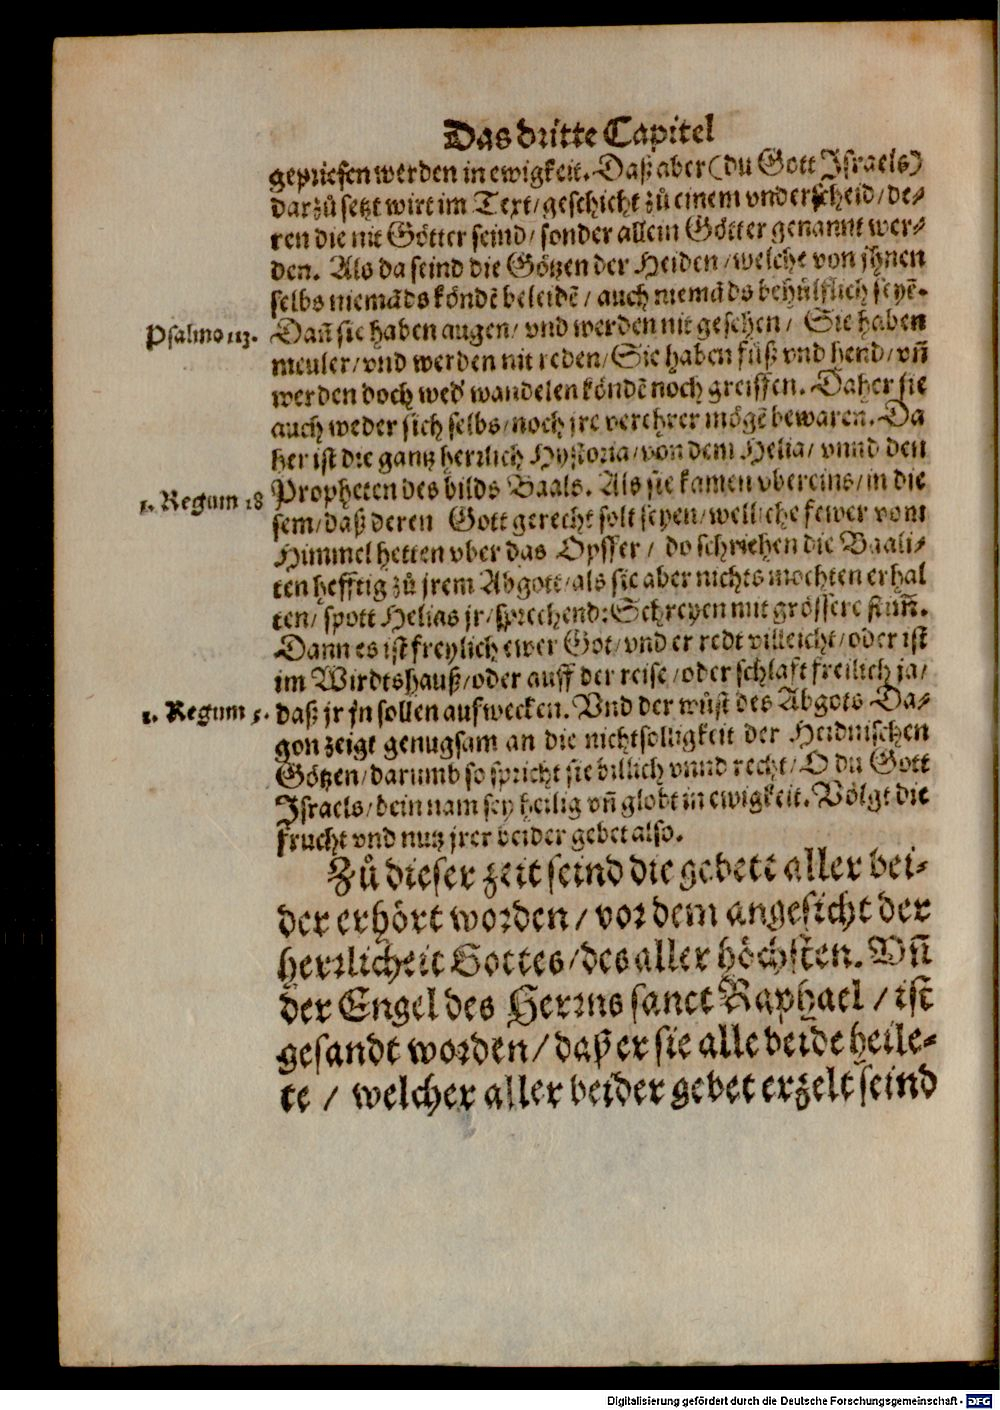 Das dritte Capitel
gepriesen werden in ewigkeit. Daß aber (du Gott Israels)
darzů setzt wirt im Text/ geschicht zů einem vnderscheid/ de⸗
ren die nit Götter seind/ sonder allein Götter genannt wer⸗
den. Als da seind die Götzen der Heiden/ welche von jhnen
selbs niemāds köndē beleidē/ auch niemāds behülfflich seyē.
Psalmo 113. Dañ sie haben augen/ vnd werden nit gesehen/ Sie haben
meuler/ vnd werden nit reden/ Sie haben füß vnd hend/ vñ
werden doch wed' wandelen köndē noch greiffen. Daher sie
auch weder sich selbs/ noch jre verehrer mögē bewaren. Da
her ist die gantz herrlich Hystoria/ von dem Helia/ vnnd den
1. Regum 18 Propheten des bilds Baals. Als sie kamen vbereins/ in die
sem/ daß deren Gott gerecht solt seyen/ welliche fewer vom
Himmel hetten vber das Opffer/ do schriehen die Baali⸗
ten hefftig zů jrem Abgott/ als sie aber nichts mochten erhal
ten/ spott Helias jr/ sprechend: Schreyen mit grössere stiñ.
Dann es ist freylich ewer Got/ vnd er redt villeicht/ oder ist
im Wirdtshauß/ oder auff der reise/ oder schlaft freilich ja/
1. Regum 5. daß jr jn sollen aufwecken. Vnd der wůst des Abgots Da⸗
gon zeigt genugsam an die nichtsolligkeit der Heidnischen
Götzen/ darumb so spricht sie billich vnnd recht/ O du Gott
Israels/ dein nam sey heilig vñ globt in ewigkeit. Völgt die
frucht vnd nutz jrer beider gebet also.
Zů dieser zeit seind die gebett aller bei⸗
der erhört worden/ vor dem angesicht der
herrlicheit Gottes/ des aller höchsten. Vñ
der Engel des Herrns sanct Raphael/ ist
gesandt worden/ daß er sie alle beide heile⸗
te/ welcher aller beider gebet erzelt seind
Digitalisierung gefördert durch die Deutsche Forschungsgemeinschaft - DFG